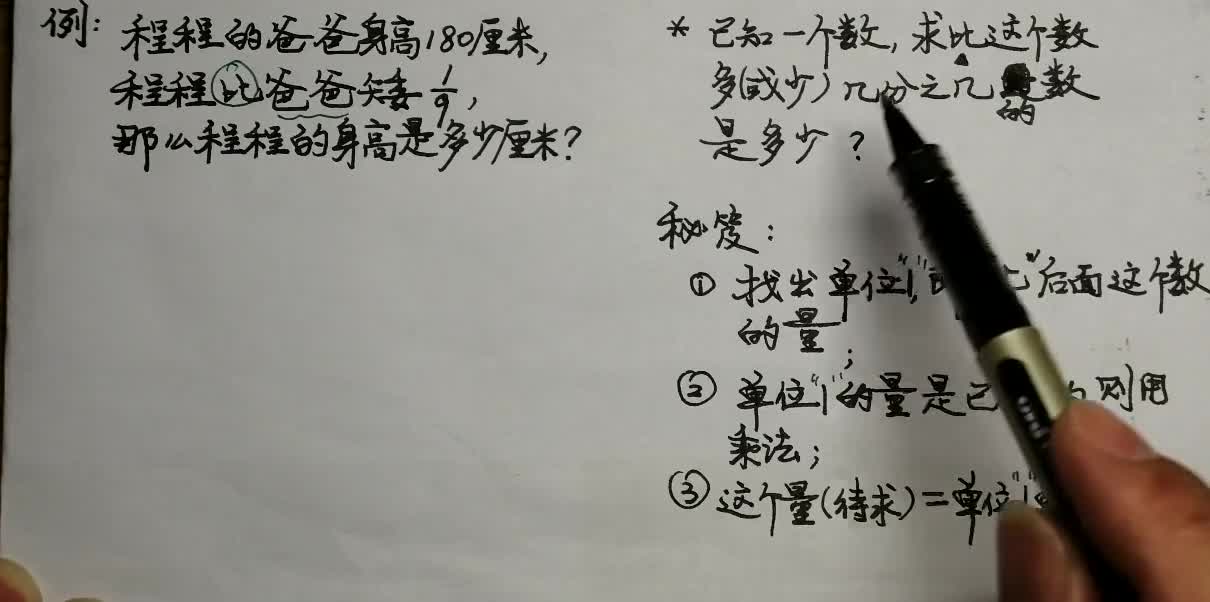 例：程程的爸爸身高180厘米，
程程比爸爸矮1/9，
那么程程的身高是多少厘米？
* 已知一个数，求比这个数
多(或少)几分之几的数
是多少？
秘笈：
① 找出单位“1”，后面这个数
的量；
② 单位“1”的量是已 则用
乘法；
③ 这个量(待求)＝单位“1”